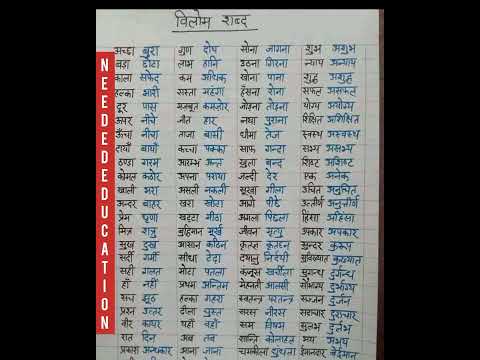 विलोम शब्द
अच्छा बुरा गुण दोष सोना जागना शुभ अशुभ
बड़ा छोटा लाभ हानि उठना गिरना न्याय अन्याय
काला सफेद कम अधिक खोना पाना शुद्ध अशुद्ध
हल्का भारी सस्ता महंगा हँसना रोना सफल असफल
दूर पास मजबूत कमजोर जोड़ना तोड़ना योग्य अयोग्य
ऊपर नीचे जीत हार नया पुराना शिक्षित अशिक्षित
ऊँचा नीचा ताजा बासी धीमा तेज स्वस्थ अस्वस्थ
दायाँ बायाँ कच्चा पक्का साफ गन्दा सभ्य असभ्य
ठण्डा गरम आरम्भ अन्त खुला बन्द शिष्ट अशिष्ट
कोमल कठोर अपना पराया जल्दी देर एक अनेक
खाली भरा असली नकली सूखा गीला उचित अनुचित
अन्दर बाहर खरा खोटा आगे पीछे उत्तीर्ण अनुत्तीर्ण
प्रेम घृणा खट्टा मीठा अगला पिछला हिंसा अहिंसा
मित्र शत्रु बुद्धिमान मूर्ख जीवन मृत्यु उपकार अपकार
सुख दुख आसान कठिन कृतज्ञ कृतघ्न सुन्दर कुरूप
सर्दी गर्मी सीधा टेढ़ा दयालु निर्दयी सुविख्यात कुख्यात
सही गलत मोटा पतला कंजूस खर्चीला सुगन्ध दुर्गन्ध
हाँ नहीं प्रथम अन्तिम मेहनती आलसी सौभाग्य दुर्भाग्य
सच झूठ हल्का गहरा स्वतन्त्र परतन्त्र सज्जन दुर्जन
प्रश्न उत्तर ढीला चुस्त सरस नीरस सदाचार दुराचार
वीर कायर यहाँ वहाँ सम विषम सुलभ दुर्लभ
रात दिन अब तब शान्ति कोलाहल भय अभय
प्रकाश अन्धकार आना जाना चमकीला धुंधला ईमानदार बेईमान
NEEDEDEDUCATION